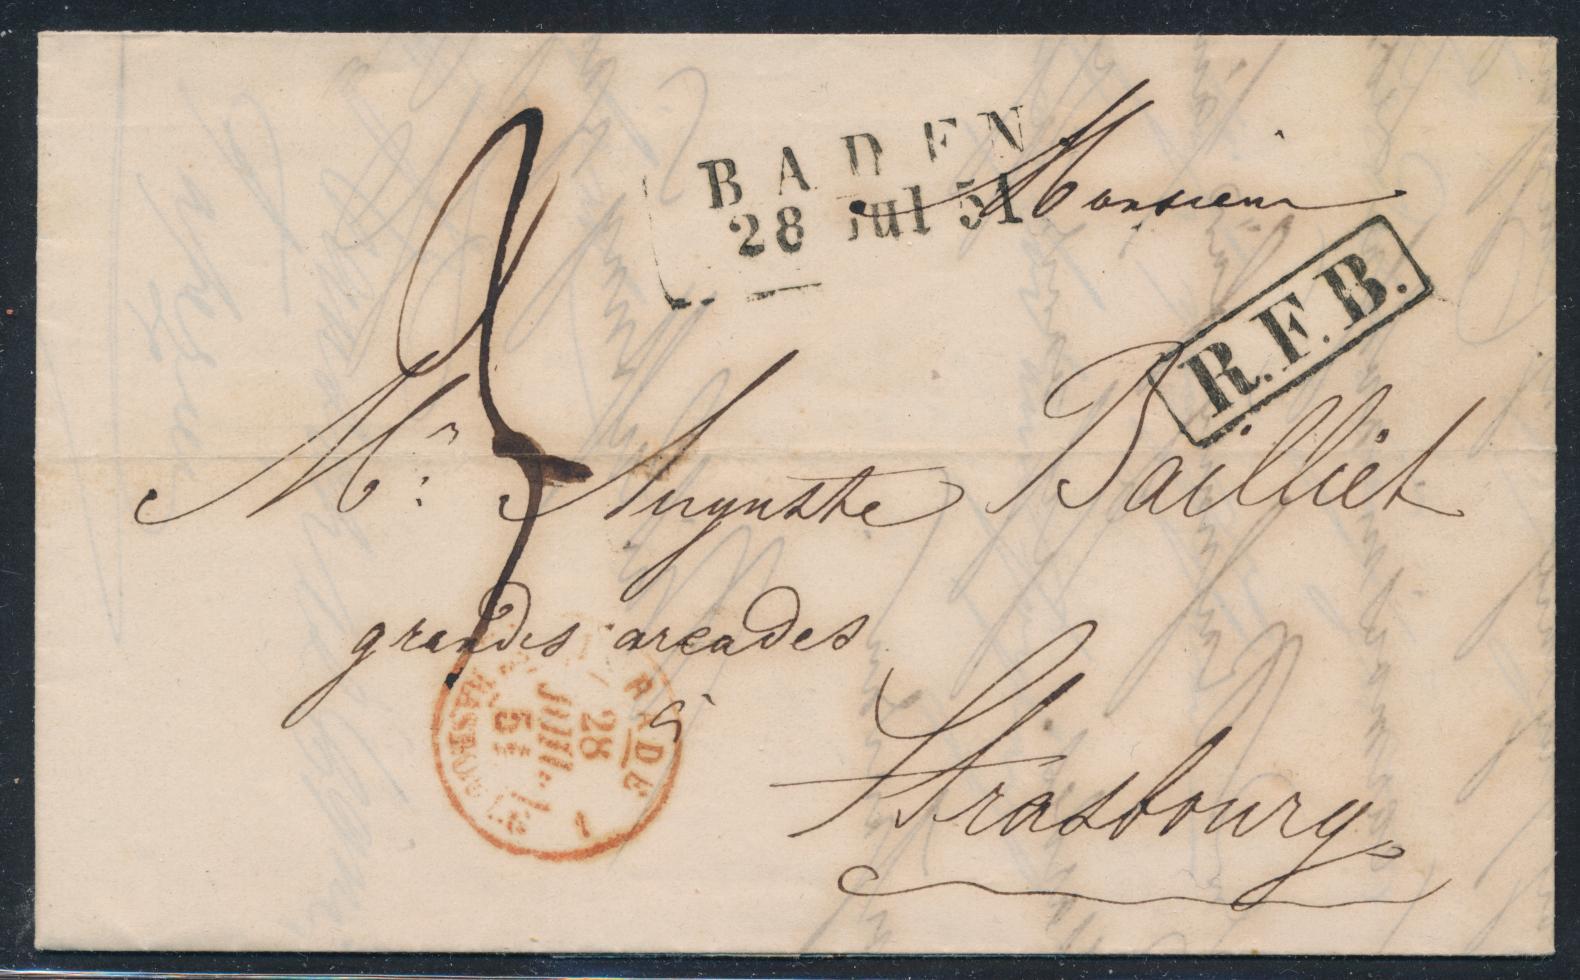 BADEN
28 Jul 51
Monsieur
R.F.B.
Mr: Auguste Bailliet
grandes arcades
à
Strasbourg
BADE
28
JUIL.
51
STRASBOURG